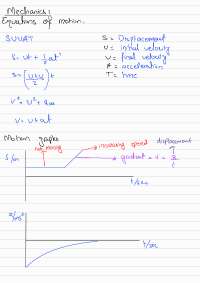 Mechanics:
Equations of motion.
SUVAT
S = Displacement
U = initial velocity
V = final velocity
A = acceleration
T = time
s = ut + 1/2 at²
s = (u+v/2) t
v² = u² + 2as
v = u + at
Motion graphs
not moving
increasing speed
displacement
s/m
gradient = v =
t/sec
t/sec